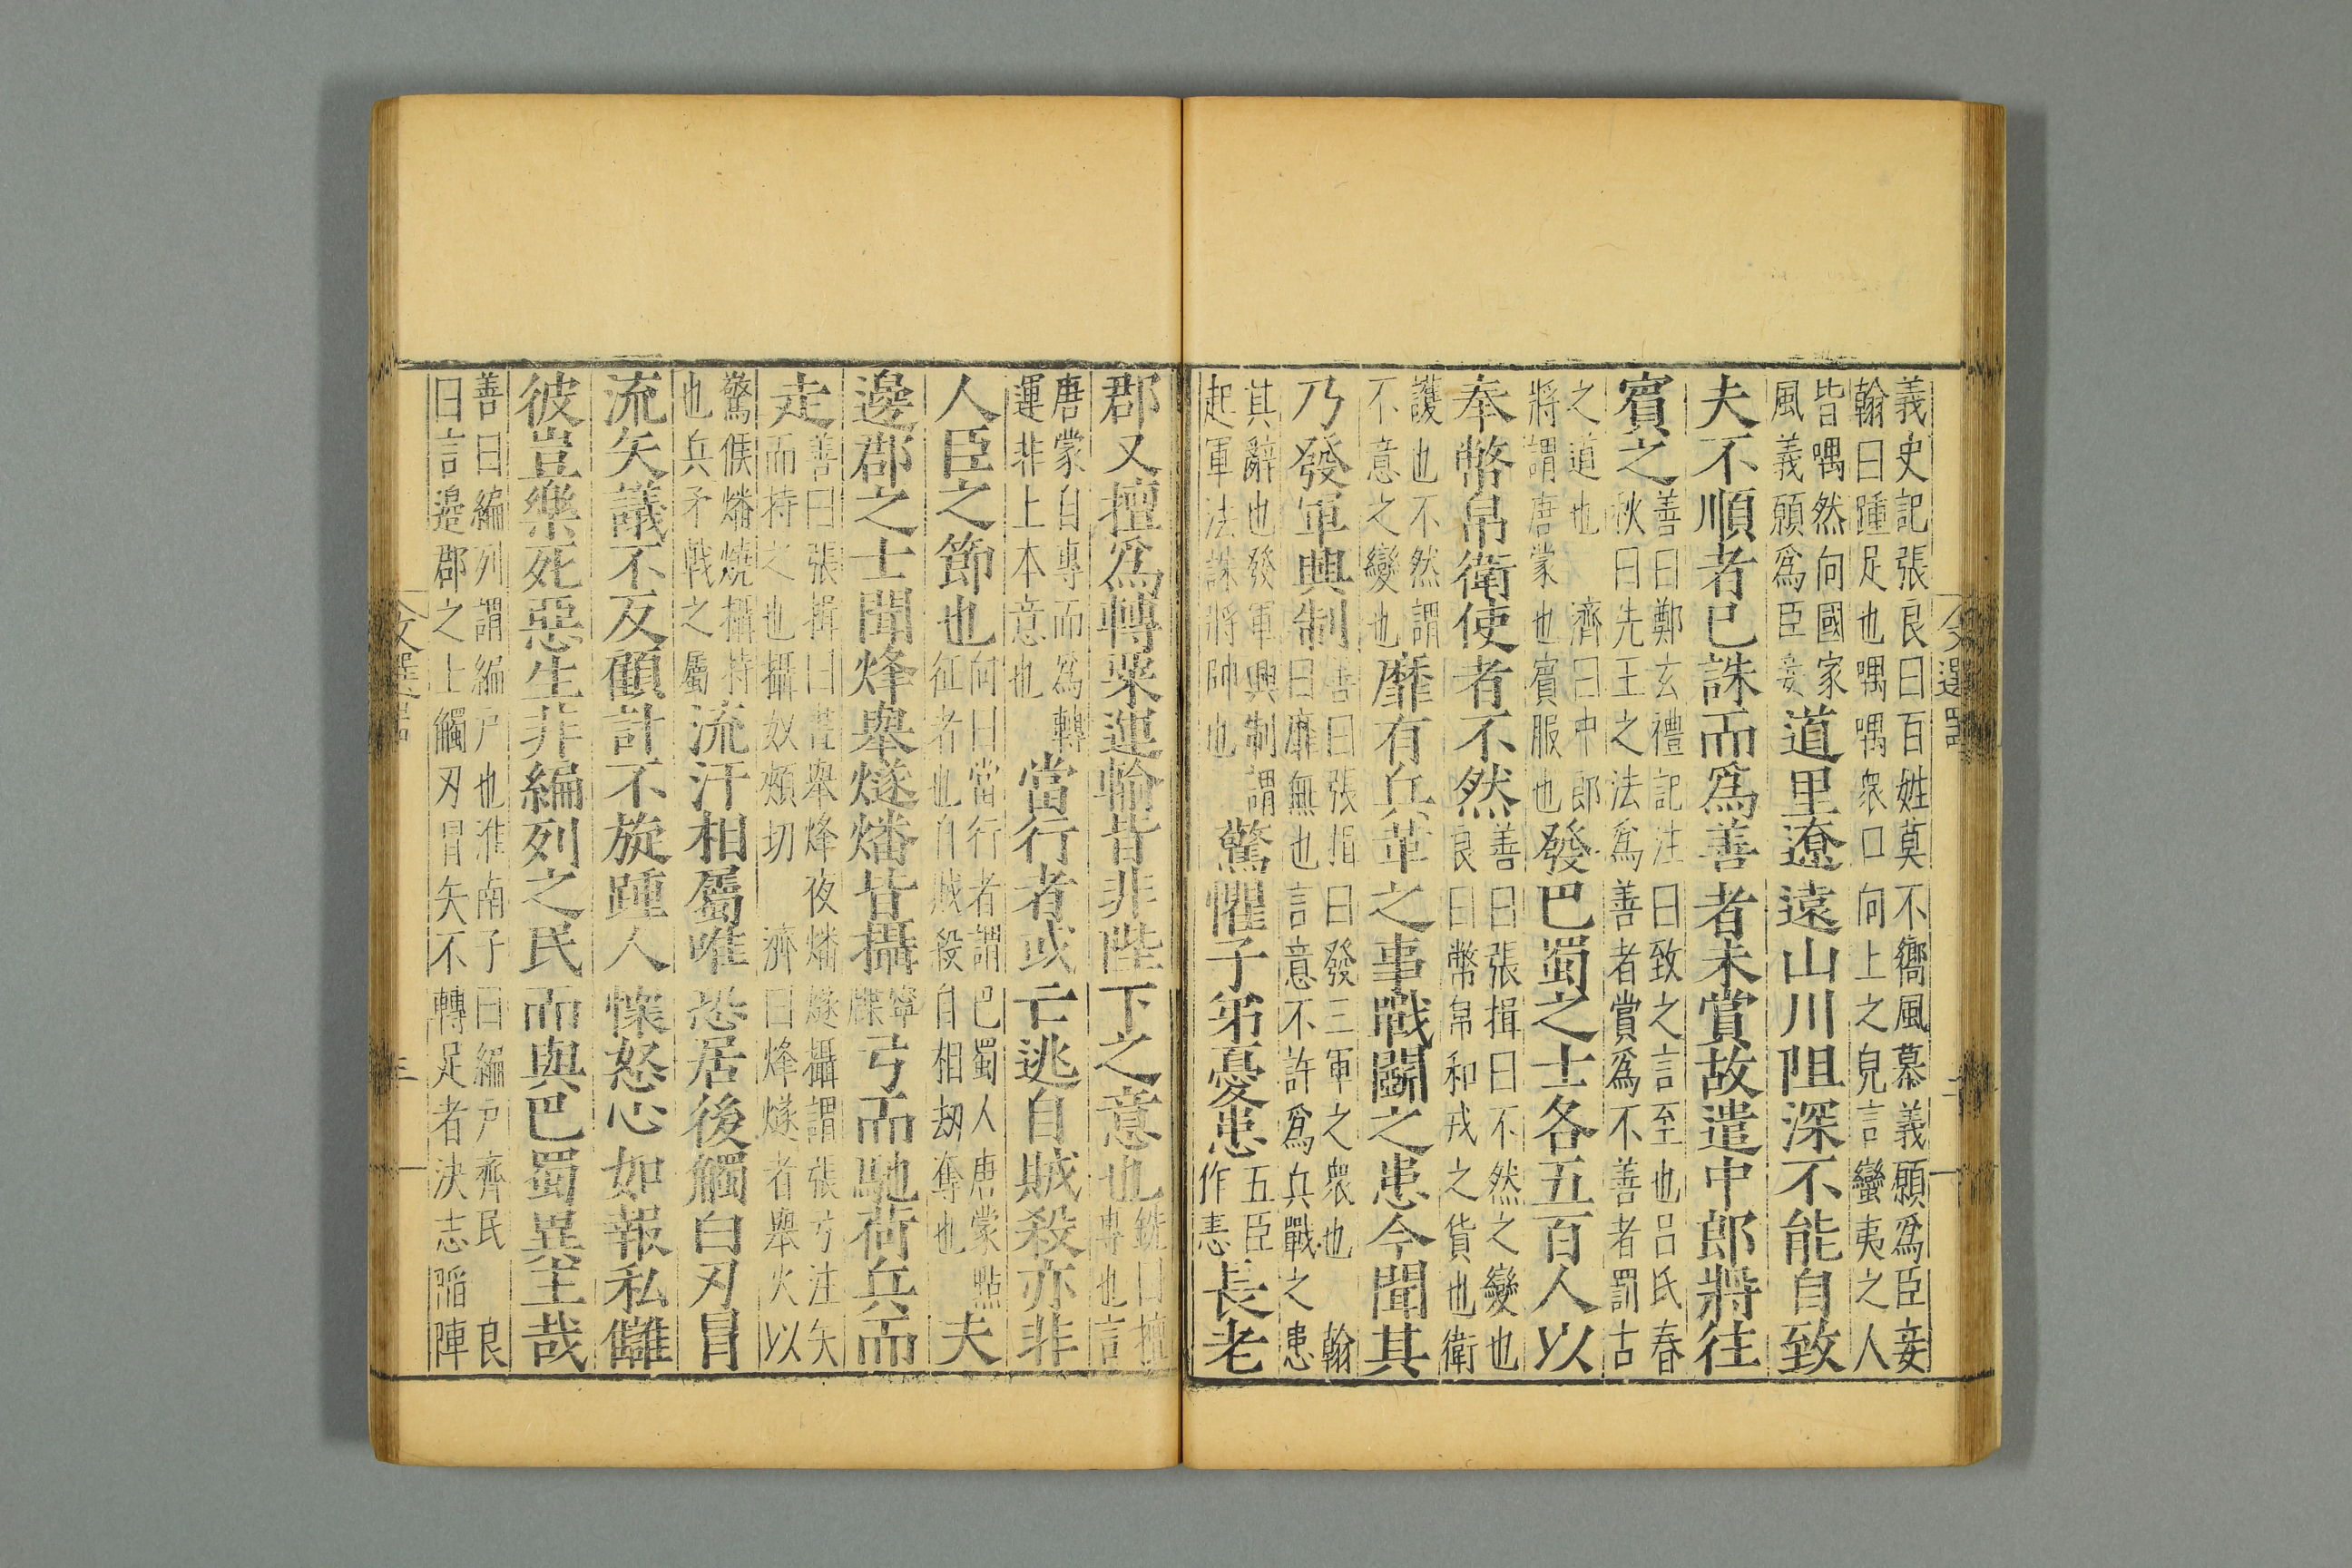 義史記張良曰百姓莫不嚮風慕義願爲臣妾
翰曰踵足也喁喁衆口向上之皃言蠻夷之人
皆喁然向國家
風義願爲臣妾
道里遼遠山川阻深不能自致
夫不順者已誅而爲善者未賞故遣中郎將往
賓之
善曰鄭玄禮記注曰致之言至也吕氏春
秋曰先王之法爲善者賞爲不善者罰古
之道也 濟曰中郎
將謂唐蒙也賓服也
發巴蜀之士各五百人以
奉幣帛衛使者不然
善曰張揖曰不然之變也
良曰幣帛和戎之貨也衛
護也不然謂
不意之變也
靡有兵革之事戰鬭之患今聞其
乃發軍興制
善曰張揖曰發三軍之衆也 翰
曰靡無也言意不許爲兵戰之患
其辭也發軍興制謂
起軍法誅將帥也
驚懼子弟憂患
五臣
作恚
長老
郡又擅爲轉粟運輸皆非陛下之意也
銑曰擅
專也言
唐蒙自專而爲轉
運非上本意也
當行者或亡逃自賊殺亦非
人臣之節也
向曰當行者謂巴蜀人唐蒙點
征者也自賊殺自相劫奪也
夫
邊郡之士聞烽舉燧燔皆攝
寧
牒
弓而馳荷兵而
走
善曰張揖曰晝舉烽夜燔燧攝謂張弓注矢
而持之也攝奴頰切 濟曰烽燧者舉火以
驚候燔燒攝持
也兵矛戟之屬
流汗相屬唯恐居後觸白刃冒
流矢議不反顧計不旋踵人懷怒心如報私讎
彼豈樂死惡生非編列之民而與巴蜀異主哉
善曰編列謂編户也淮南子曰編户齊民 良
曰言邊郡之士觸刃冒矢不轉足者決志陷陣
三